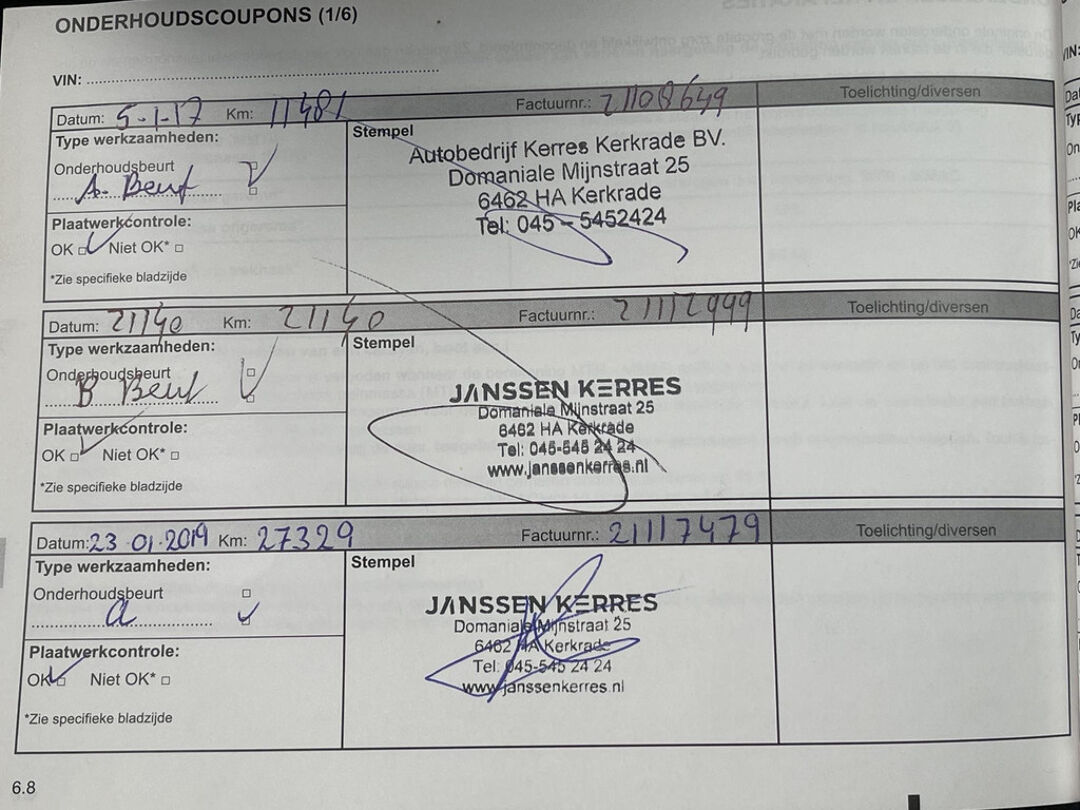 ONDERHOUDSCOUPONS (1/6)
VIN:
Datum: 5-1-17 Km: 11481 Factuurnr.: 21108649 Toelichting/diversen
Type werkzaamheden:
Stempel
Onderhoudsbeurt
A. Beurt
Autobedrijf Kerres Kerkrade BV.
Domaniale Mijnstraat 25
6462 HA Kerkrade
Tel: 045 – 5452424
Plaatwerkcontrole:
OK Niet OK*
*Zie specifieke bladzijde
Datum: 21140 Km: 21140 Factuurnr.: 21112999 Toelichting/diversen
Type werkzaamheden:
Stempel
Onderhoudsbeurt
B Beurt
JANSSEN KERRES
Domaniale Mijnstraat 25
6462 HA Kerkrade
Tel: 045-545 24 24
www.janssenkerres.nl
Plaatwerkcontrole:
OK Niet OK*
*Zie specifieke bladzijde
Datum: 23-01-2019 Km: 27329 Factuurnr.: 21117479 Toelichting/diversen
Type werkzaamheden:
Stempel
Onderhoudsbeurt
a
JANSSEN KERRES
Domaniale Mijnstraat 25
6462 HA Kerkrade
Tel: 045-545 24 24
www.janssenkerres.nl
Plaatwerkcontrole:
OK Niet OK*
*Zie specifieke bladzijde
6.8